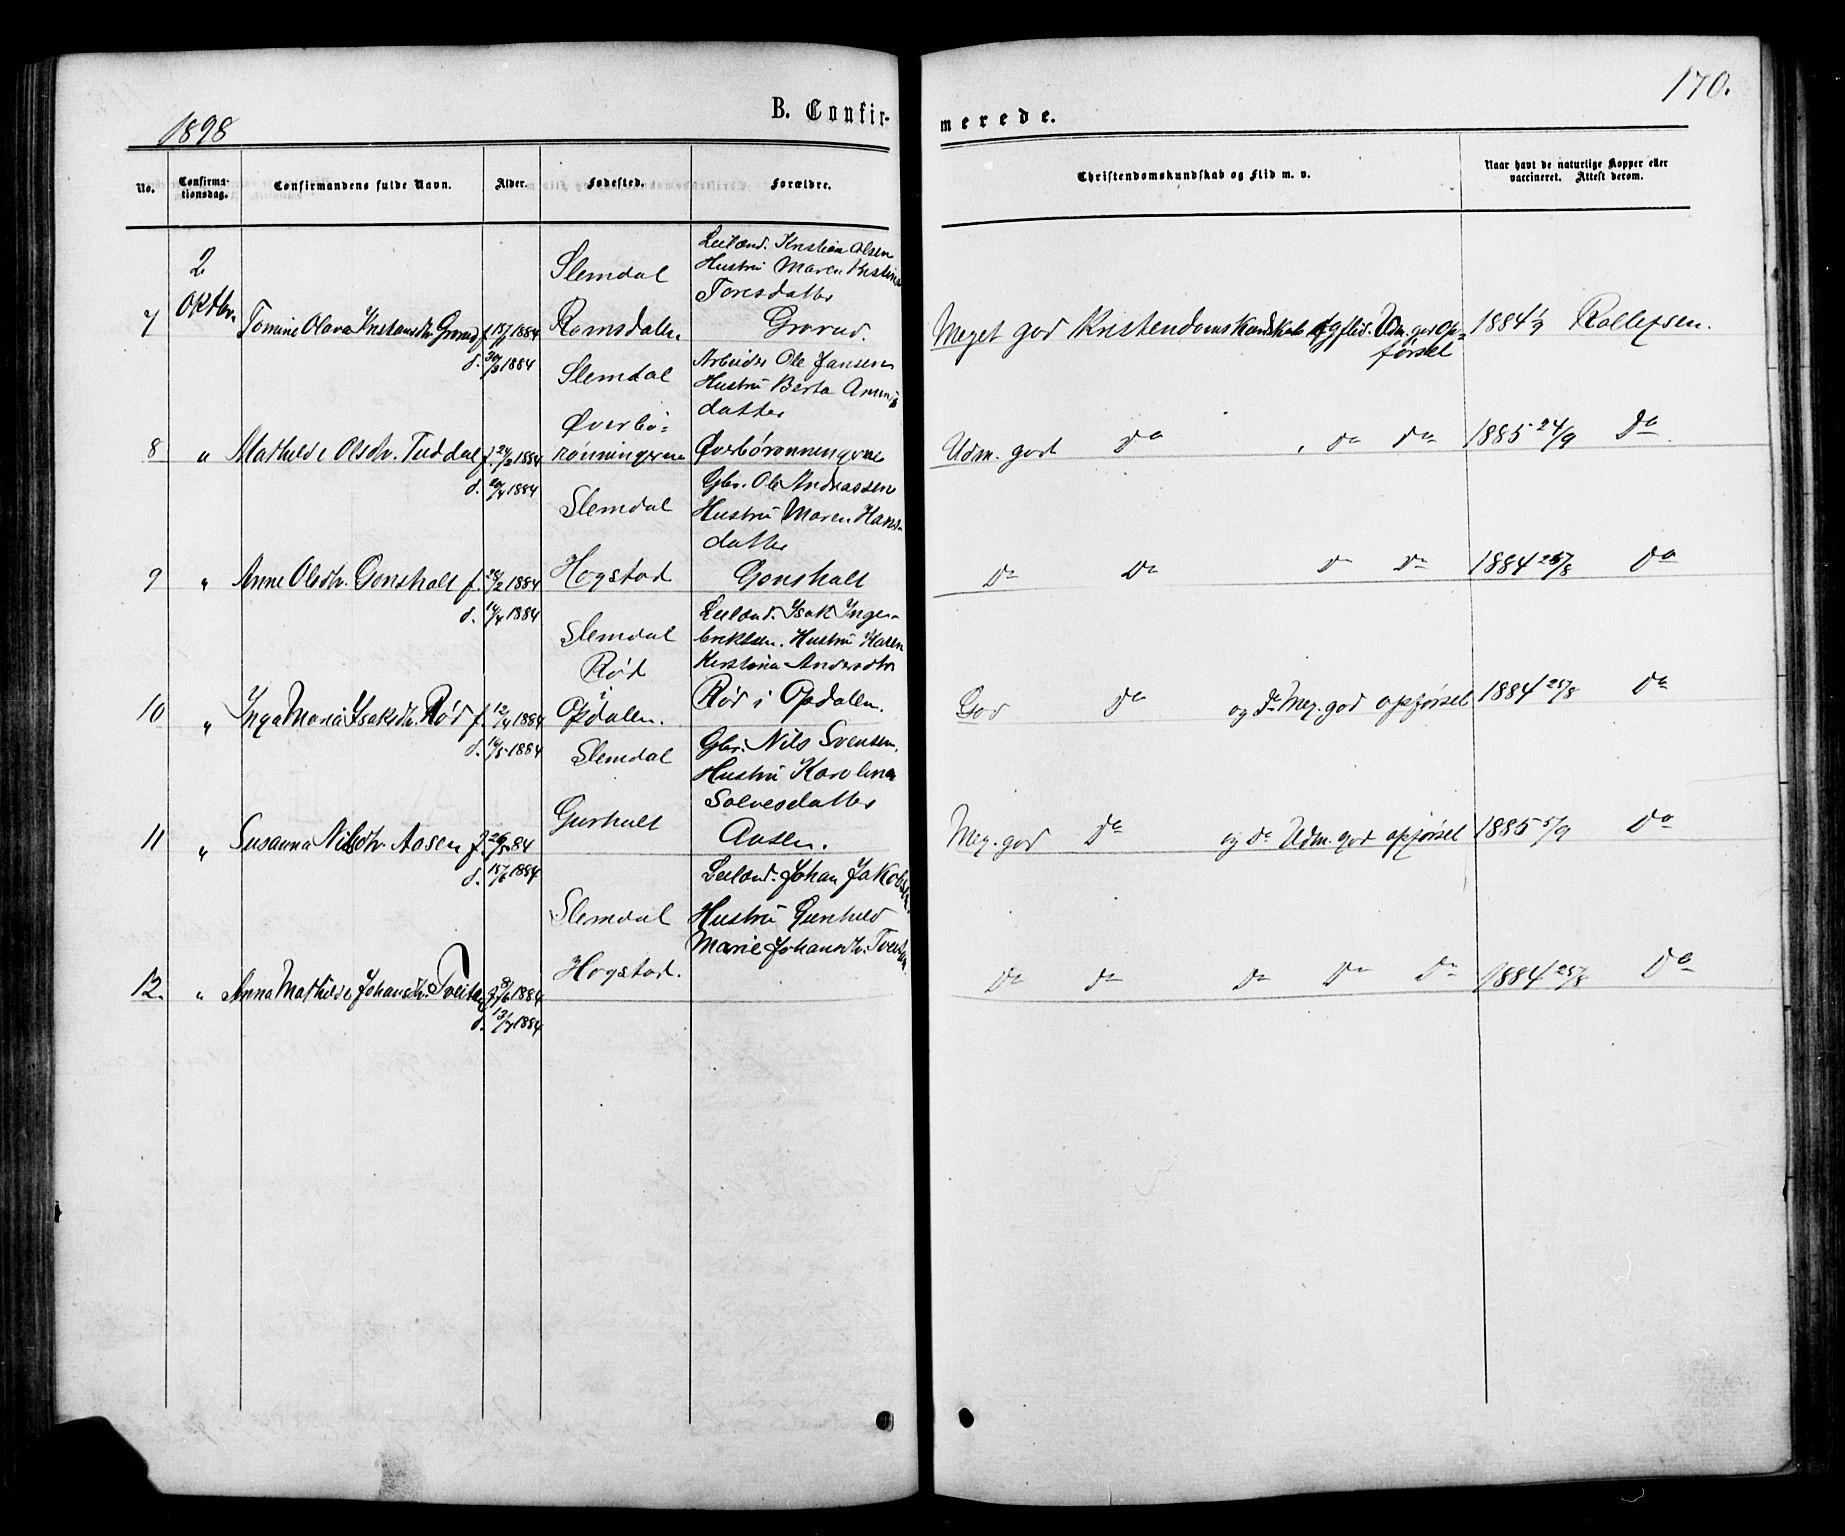 170.
1898
B. Confir-
merede.
No.
Confirma-
tionsdag.
Confirmandens fulde Navn.
Alder.
Fødested.
Forældre.
Christendomskundskab og Flid m. v.
Naar havt de naturlige Kopper eller
vaccineret. Attest derom.
2
Oktbr.
Slemdal
Leilænd. Kristian Olsen
Hustru Maren Kristine
Toresdatter
7 Tomine Olava Kristansdtr. Grorud f. 15/7 1884 Romsdalen Grorud. Meget god Kristendomskundskab og flid. Udm. god Op- 1884 1/9 Rollefsen.
førsel
d. 30/3 1884
Slemdal
Arbeider Ole Jansen
Hustru Berta
datter
Øverbö-
8 " Mathilde Olsdtr. Tuddal f. 24/2 1884 rönningerne Øverbörönningerne Udm. god Do , Do Do 1885 24/9 Do
d. 20/4 1884
Slemdal
Gbr. Ole Andreassen
Hustru Maren Hans-
datter
9 " Anne Olsdtr. Gonsholt f. 28/2 1884 Hogstad Gonsholt Do Do Do Do 1884 25/8 Do
d. 14/4 1884
Slemdal
Leilænd. Isak Inge-
briktsen. Hustru Karen
Kirstine Andersdtr
Rød
i
10 " Inga Maria Isaksdtr. Rød f. 12/4 1884 Opdalen. Rød i Opdalen. God Do og do Meg. god opførsel 1884 25/8 Do
d. 16/5 1884
Slemdal
Gbr. Nils Svensen,
Hustru Karolina
Solvesdatter
11 " Susanna Nilsdtr. Aasen f. 26/5 84 Gurholt Aasen. Meg. god Do og do Udm. god opførsel 1885 5/9 Do
d. 15/6 1884
Slemdal
Leilænd. Johan Jakobsen,
Hustru Gunhild
Marie Johansdtr. Tveiten
12. " Anna Mathilde Johansdtr. Tveiten f. 3/6 1884 Hogstad. Do Do Do Do Do 1884 25/8 Do
d. 13/7 1884